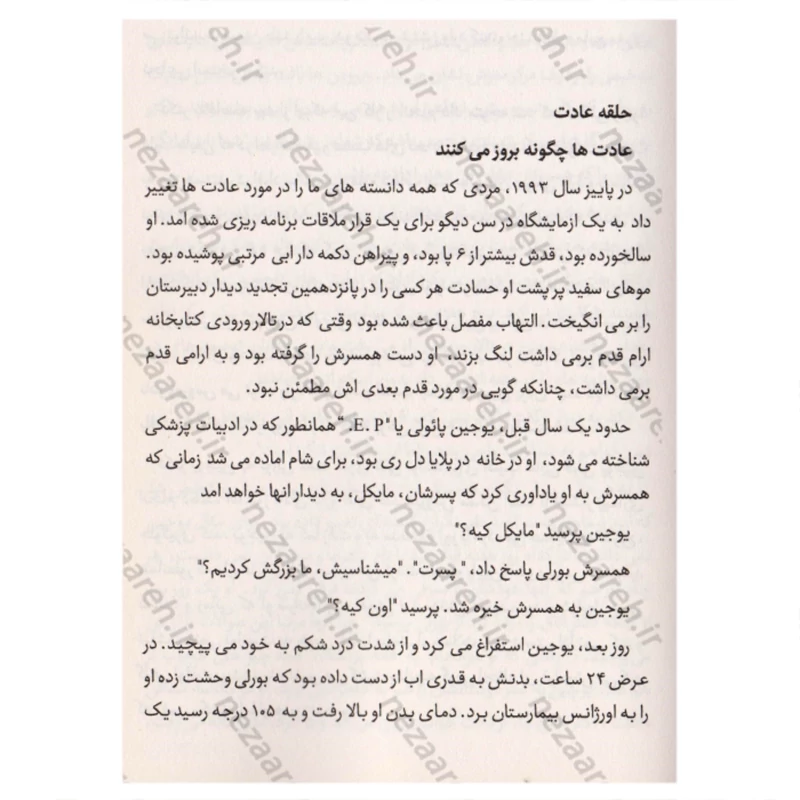 حلقه عادت
عادت ها چگونه بروز می کنند
در پاییز سال ۱۹۹۳، مردی که همه دانسته های ما را در مورد عادت ها تغییر
داد به یک ازمایشگاه در سن دیگو برای یک قرار ملاقات برنامه ریزی شده امد. او
سالخورده بود، قدش بیشتر از ۶ پا بود، و پیراهن دکمه دار ابی مرتبی پوشیده بود.
موهای سفید پر پشت او حسادت هر کسی را در پانزدهمین تجدید دیدار دبیرستان
را بر می انگیخت. التهاب مفصل باعث شده بود وقتی که در تالار ورودی کتابخانه
ارام قدم برمی داشت لنگ بزند، او دست همسرش را گرفته بود و به ارامی قدم
برمی داشت، چنانکه گویی در مورد قدم بعدی اش مطمئن نبود.
حدود یک سال قبل، یوجین پائولی یا "E. P. “همانطور که در ادبیات پزشکی
شناخته می شود، او در خانه در پلایا دل ری بود، برای شام اماده می شد زمانی که
همسرش به او یاداوری کرد که پسرشان، مایکل، به دیدار انها خواهد امد
یوجین پرسید "مایکل کیه؟"
همسرش بورلی پاسخ داد، " پسرت". "میشناسیش، ما بزرگش کردیم؟"
یوجین به همسرش خیره شد. پرسید "اون کیه؟"
روز بعد، یوجین استفراغ می کرد و از شدت درد شکم به خود می پیچید. در
عرض ۲۴ ساعت، بدنش به قدری اب از دست داده بود که بورلی وحشت زده او
را به اورژانس بیمارستان برد. دمای بدن او بالا رفت و به ۱۰۵ درجه رسید یک
nezaareh.ir